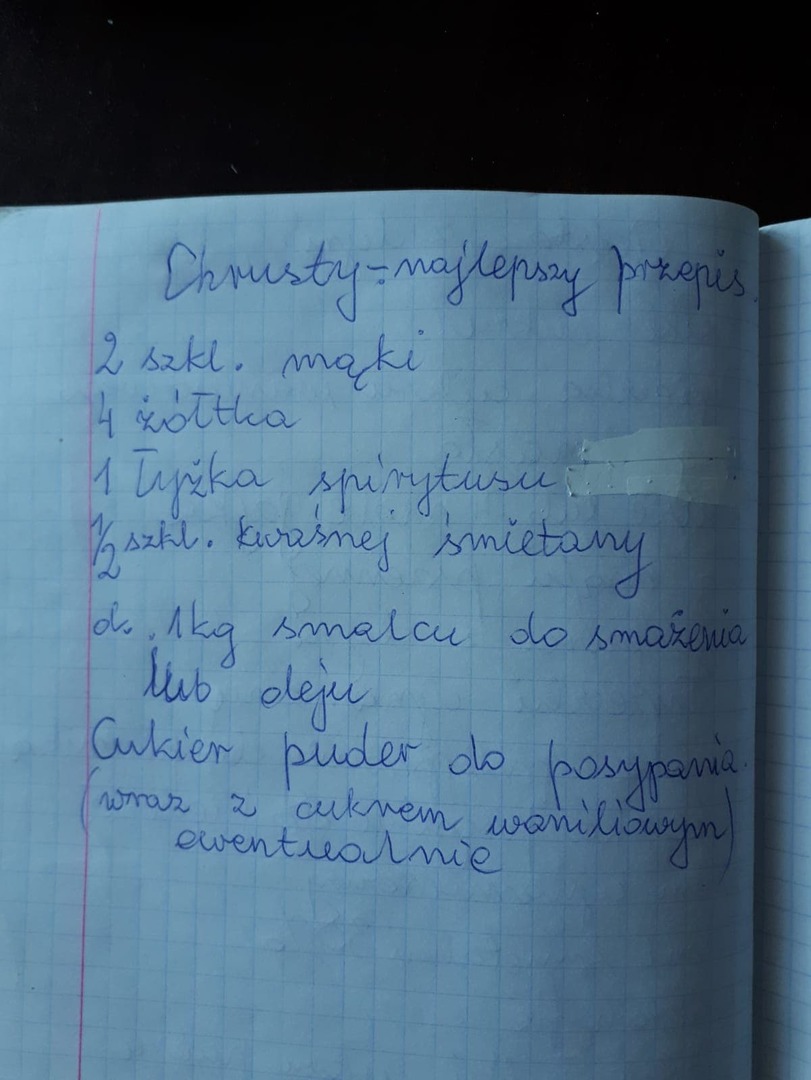 Chrusty - najlepszy przepis.
2 szkl. mąki
4 żółtka
1 łyżka spirytusu
1/2 szkl. kwaśnej śmietany
ok. 1kg smalcu do smażenia
lub oleju
Cukier puder do posypania.
(wraz z cukrem waniliowym)
ewentualnie